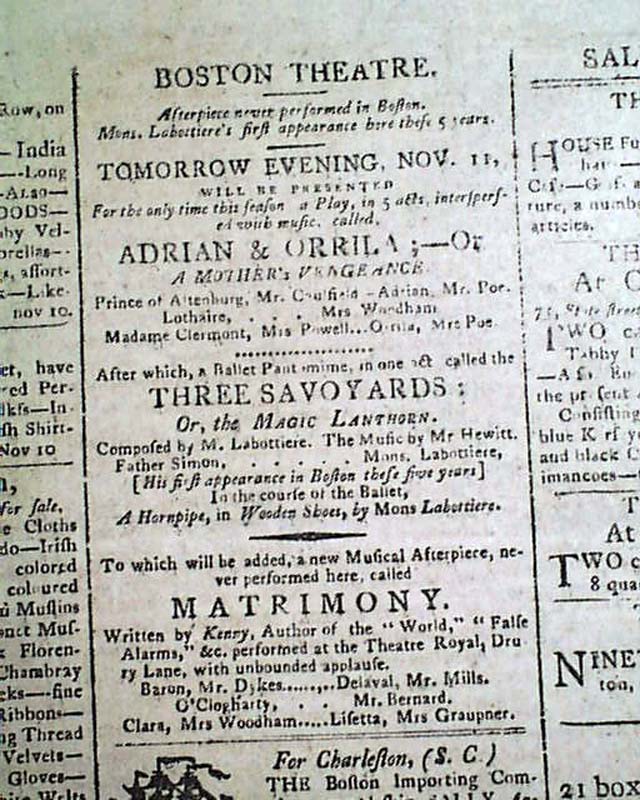 BOSTON THEATRE.
Afterpiece never performed in Boston.
Mons. Labottiere's first appearance here these 5 years.
TOMORROW EVENING, NOV. 11,
WILL BE PRESENTED
For the only time this season a Play, in 5 acts, interspers-
ed with music, called,
ADRIAN & ORRILA;—Or
A MOTHER's VENGEANCE.
Prince of Altenburg, Mr. Caulfield—Adrian, Mr. Poe.
Lothaire, . . . Mrs Woodham
Madame Clermont, Mrs Powell...Orrila, Mrs Poe
After which, a Ballet Pantomime, in one act called the
THREE SAVOYARDS:
Or, the MAGIC LANTHORN.
Composed by M. Labottiere. The Music by Mr Hewitt.
Father Simon, . . . . . Mons. Labottiere,
[His first appearance in Boston these five years]
In the course of the Ballet,
A Hornpipe, in Wooden Shoes, by Mons Labottiere.
To which will be added, a new Musical Afterpiece, ne-
ver performed here, called
MATRIMONY.
Written by Kenny, Author of the "World," "False
Alarms," &c. performed at the Theatre Royal, Dru
ry Lane, with unbounded applause.
Baron, Mr. Dykes........Delaval, Mr. Mills.
O'Clogharty, . . Mr. Bernard.
Clara, Mrs Woodham.....Lisetta, Mrs Graupner.
For Charleston, (S. C.)
THE Boston Importing Com-
Row, on
India
—Long
—Also—
OODS—
by Vel-
brellas—
s, assort-
k—Like-
nov 10.
et, have
red Per-
lkfs—In-
sh Shirt-
Nov 10
for sale.
e Cloths
do—Irish
colored
coloured
Muslins
Mus-
Floren-
Chambray
cks—fine
Ribbons—
ng Thread
Velvets—
Gloves—
Welts
SAL
TH
HOUSE Fu
hat—
ture, a numbe
articles.
TH
At C
75, State street
TWO ca
Tabby
the present
Consisting
blue
and black C
imancoes—
T
At
TWO c
8 qua
NINE
ton,
21 box